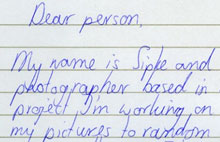 Dear person,
My name is Sipke and
photographer based in
project I'm working on
my pictures to random